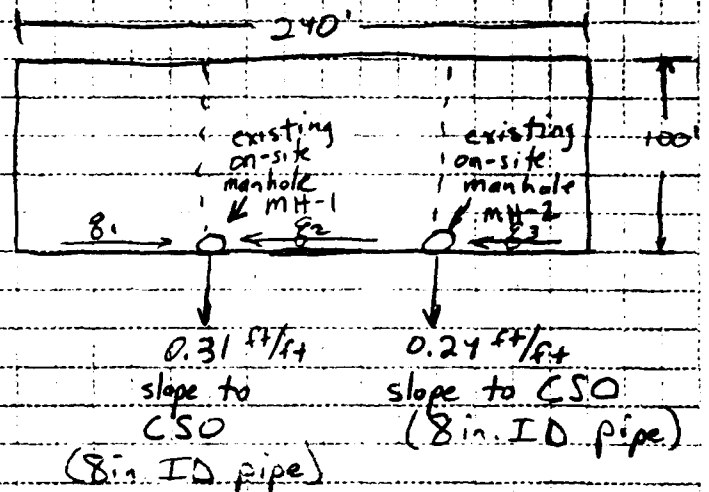 240'
100'
existing
on-site
manhole
MH-1
existing
on-site
manhole
MH-2
q1
q2
q3
0.31 ft/ft
slope to
CSO
(8 in ID pipe)
0.24 ft/ft
slope to CSO
(8 in. ID pipe)